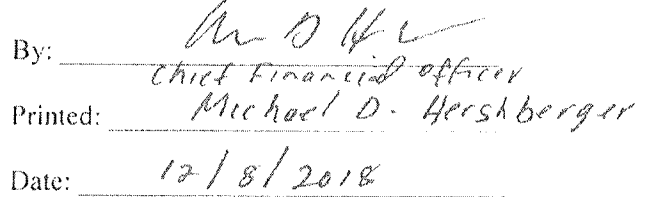 By:
Chief Financial officer
Printed: Michael D. Hershberger
Date: 12/8/2018